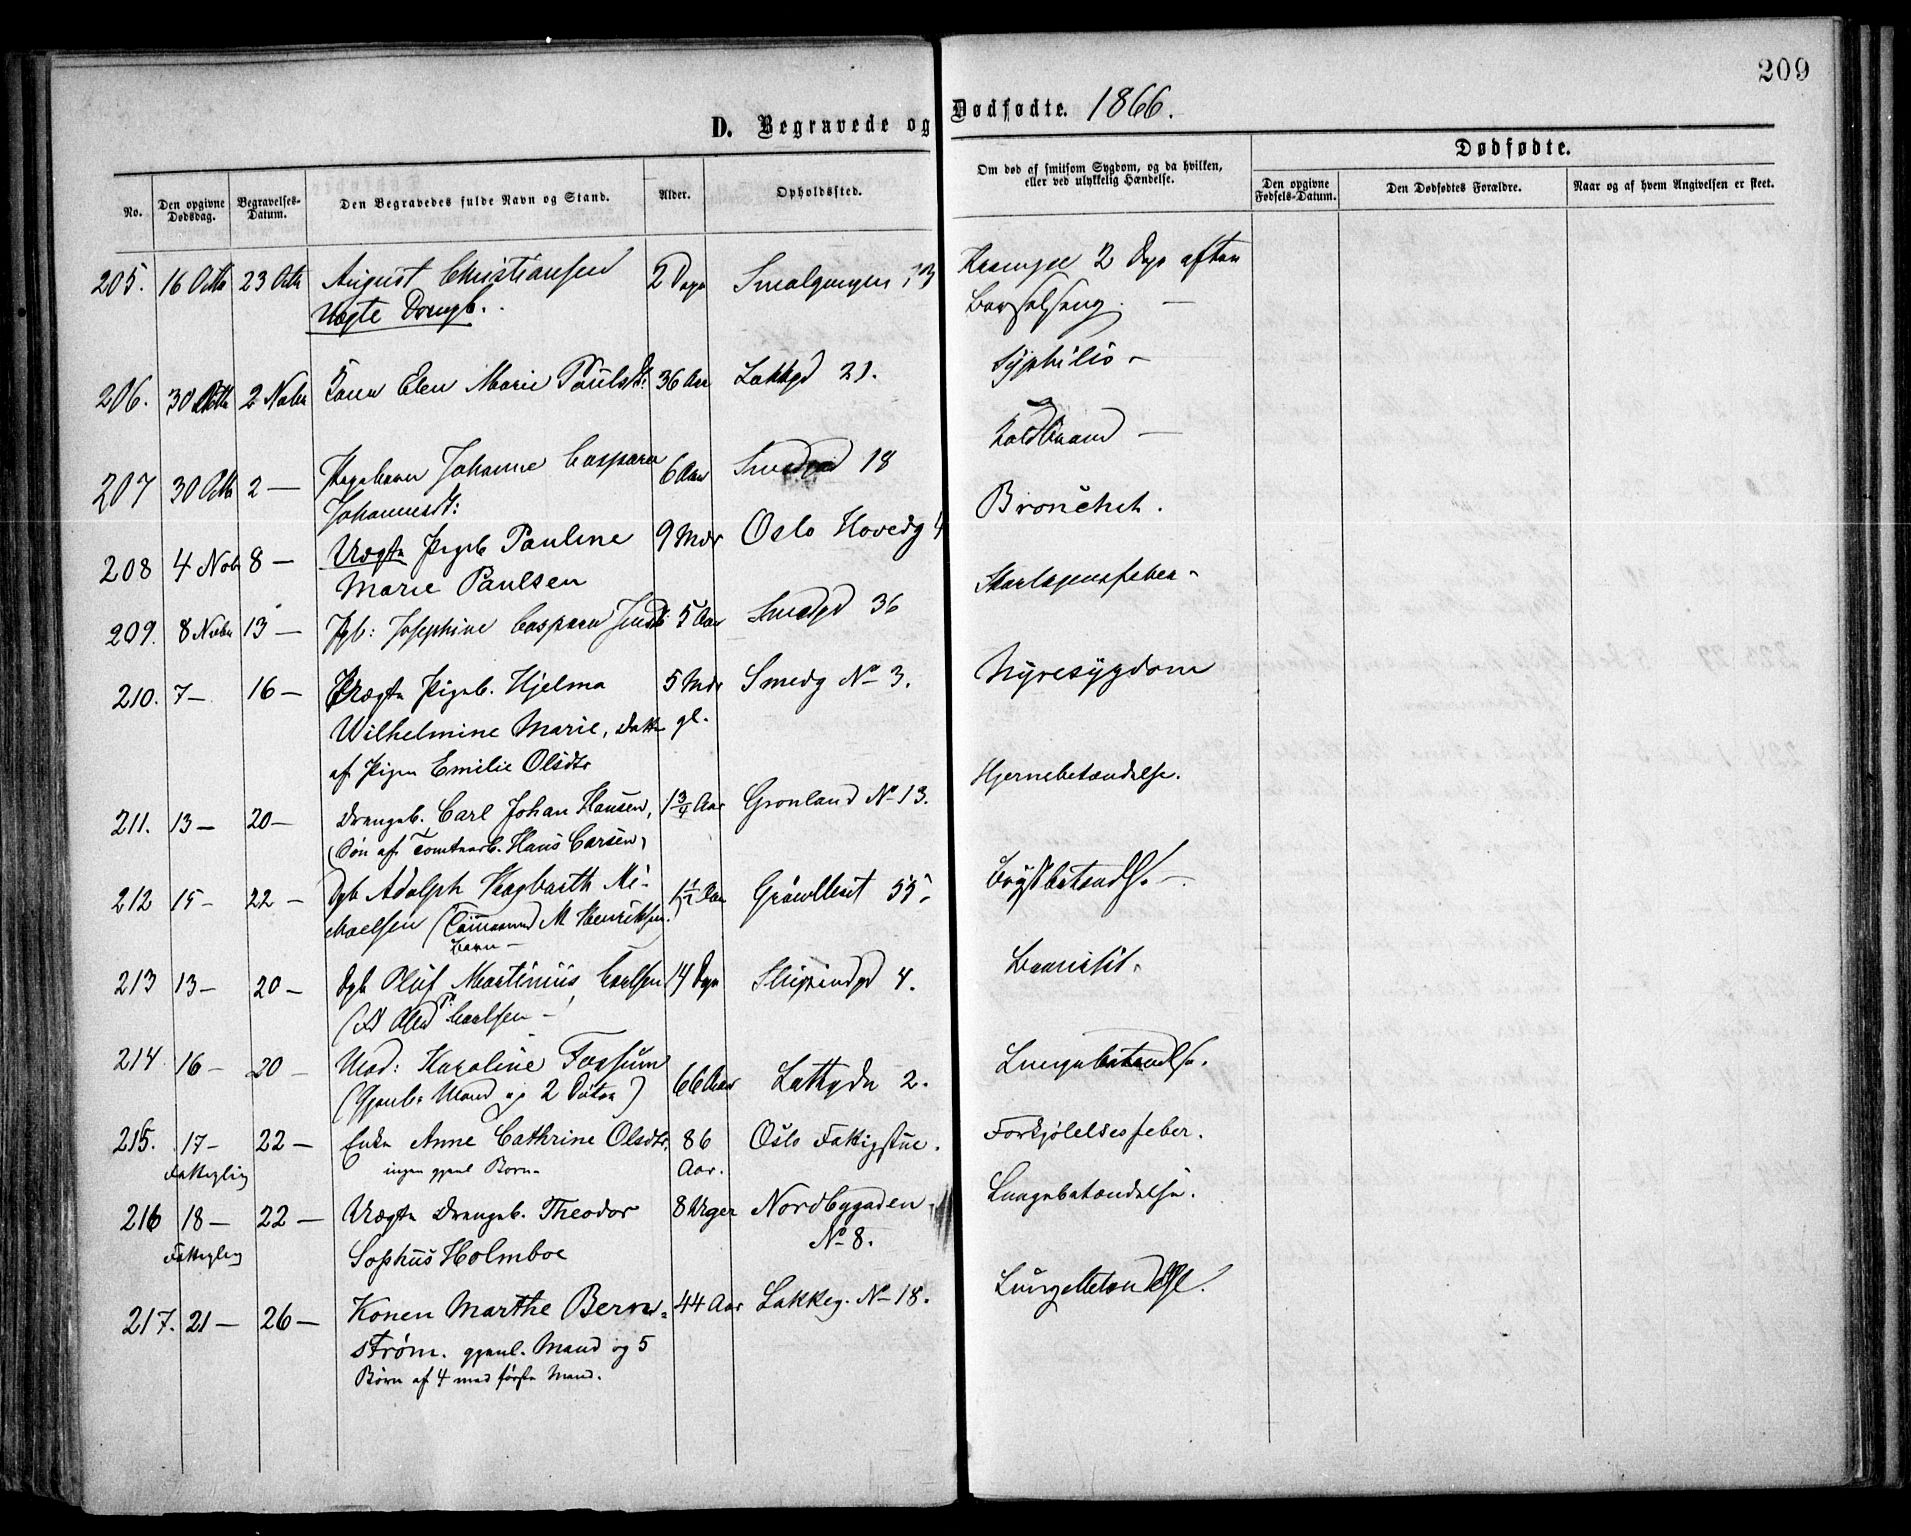 209
D. Begravede og Dødfødte. 1866.
No.
Den opgivne Dødsdag.
Begravelses-Datum.
Den Begravedes fulde Navn og Stand.
Alder.
Opholdssted.
Om død af smitsom Sygdom, og da hvilken, eller ved ulykkelig Hændelse.
Dødfødte.
Den opgivne Fødsels-Datum.
Den Dødfødtes Forældre.
Naar og af hvem Angivelsen er skeet.
205. 16 Octb 23 Octb August Christiansen 2 Dage Smalgangen 13 Krampe 2 Dage efter
Uægte Drengb. Barselseng. —
206. 30 Octb 2 Novbr Elen Marie Paulsdt: 36 Aar Lakkgd 21. Syphilis —
207 30 Octb 2 — Pigebarn Johanne Caspara 6 Aar Smedgd 18 Koldbrand —
Johannesdt:
208 4 Nov 8 — Uægte Pigeb Pauline 9 Mdr Oslo Hovedg 4 Bronchit.
Marie Paulsen
209. 8 Novbr 13 — Pgb: Josephine Caspara 5 Aar Smedgd 36 Skarlagensfeber —
210. 7 — 16 — Uægte Pigeb. Hjelma 5 Mdr Smedg No 3. Nyresygdom
Wilhelmine Marie, Datter gl.
af Pigen Emilie Olsdtr
211. 13 — 20 — Drengeb. Carl Johan Hansen, 1 3/4 Aar Grønland No 13. Hjernebetændelse.
(Søn af Tomtearb. Hans Carsen)
212 15 — 22 — Dgb Adolph Hagbarth Mi-
chaelsen (Tømmermd M Henriksen. 1 1/2 Aar Grønlleret 55. Brystbetændls. —
barn —
213 13 — 20 — Dgb Oluf Martinius Carlsen 14 Dge 4.
Carlsen —
214 16 — 20 — Mad: Karoline Fossum 66 Aar Lakkgdn 2. Lungebetændlse.
(Gjenl: Mand og 2 Døtre)
215. 17 — 22 — Enke Anne Cathrine Olsdtr. 86 Oslo Fattigstue. Forkjølelsesfeber.
Fattiglig ingen gjenl Børn — Aar.
216 18 — 22 — Uægte Drengeb. Theodor 8 Uger Nordbygaden Lungebetændelse.
Fattiglig Sophus Holmboe No 8.
217. 21 — 26 — Konen Marthe Bern- 44 Aar Lakkeg. No 18. Lungebetændlse.
strøm. gjenl. Mand og 5
Børn af 4 med første Mand.